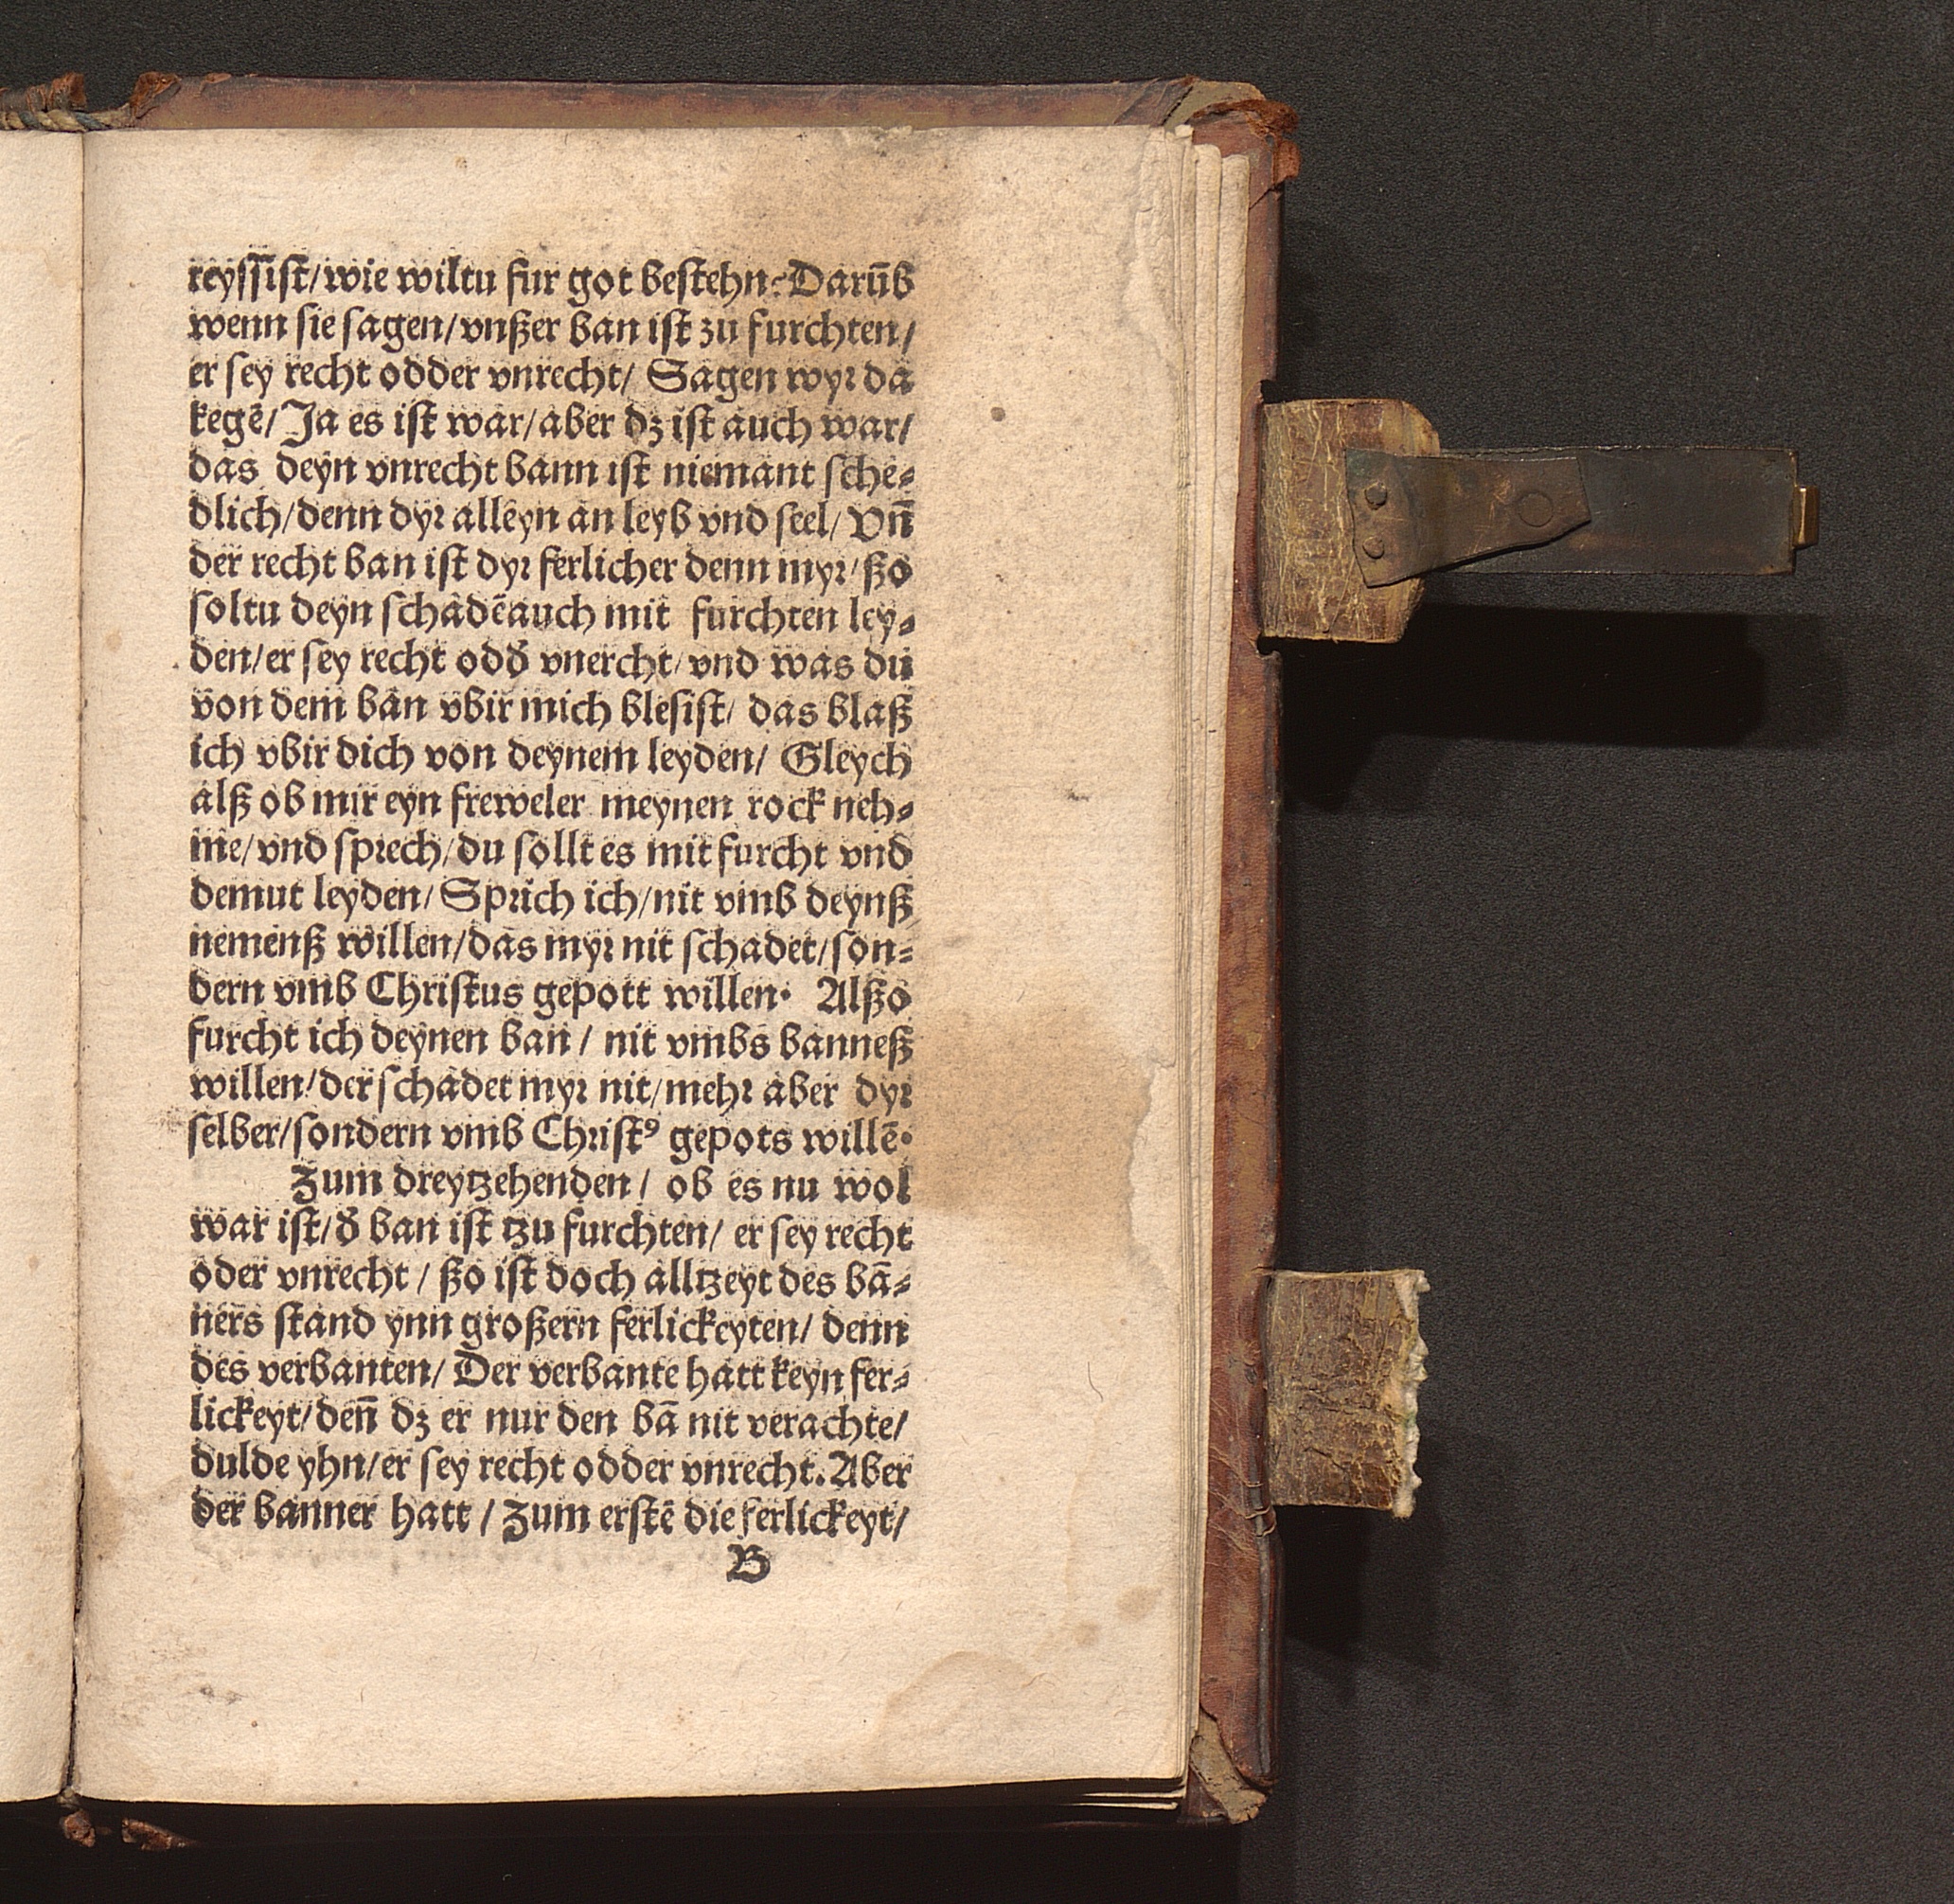 reyssist/wie wiltu fur got bestehn? Darūb
wenn sie sagen/vnßer ban ist zu furchten/
er sey recht odder vnrecht/ Sagen wyr da
kegē/Ja es ist war/aber dz ist auch war/
das deyn vnrecht bann ist niemant sche⸗
dlich/denn dyr alleyn an leyb vnd seel/ Vn̄
der recht ban ist dyr ferlicher denn myr/ßo
soltu deyn schadēauch mit furchten ley⸗
den/er sey recht odď vnercht/vnd was du
von dem ban vbir mich blesist/ das blaß
ich vbir dich von deynem leyden/ Gleych
alß ob mir eyn freweler meynen rock neh⸗
me/vnd sprech/du sollt es mit furcht vnd
demut leyden/Sprich ich/nit vmb deynß
nemenß willen/das myr nit schadet/son⸗
dern vmb Christus gepott willen. Alßo
furcht ich deynen ban/ nit vmbs banneß
willen/der schadet myr nit/mehr aber dyr
selber/sondern vmb Christꝰ gepots willē.
Zum dreytzehenden/ ob es nu wol
war ist/ď ban ist tzu furchten/ er sey recht
oder vnrecht/ ßo ist doch alltzeyt des bā⸗
ners stand ynn großern ferlickeyten/ denn
des verbanten/ Der verbante hatt keyn fer⸗
lickeyt/den̄ dz er nur den bā nit verachte/
dulde yhn/er sey recht odder vnrecht. Aber
der banner hatt/ Zum erstē die ferlickeyt/
B